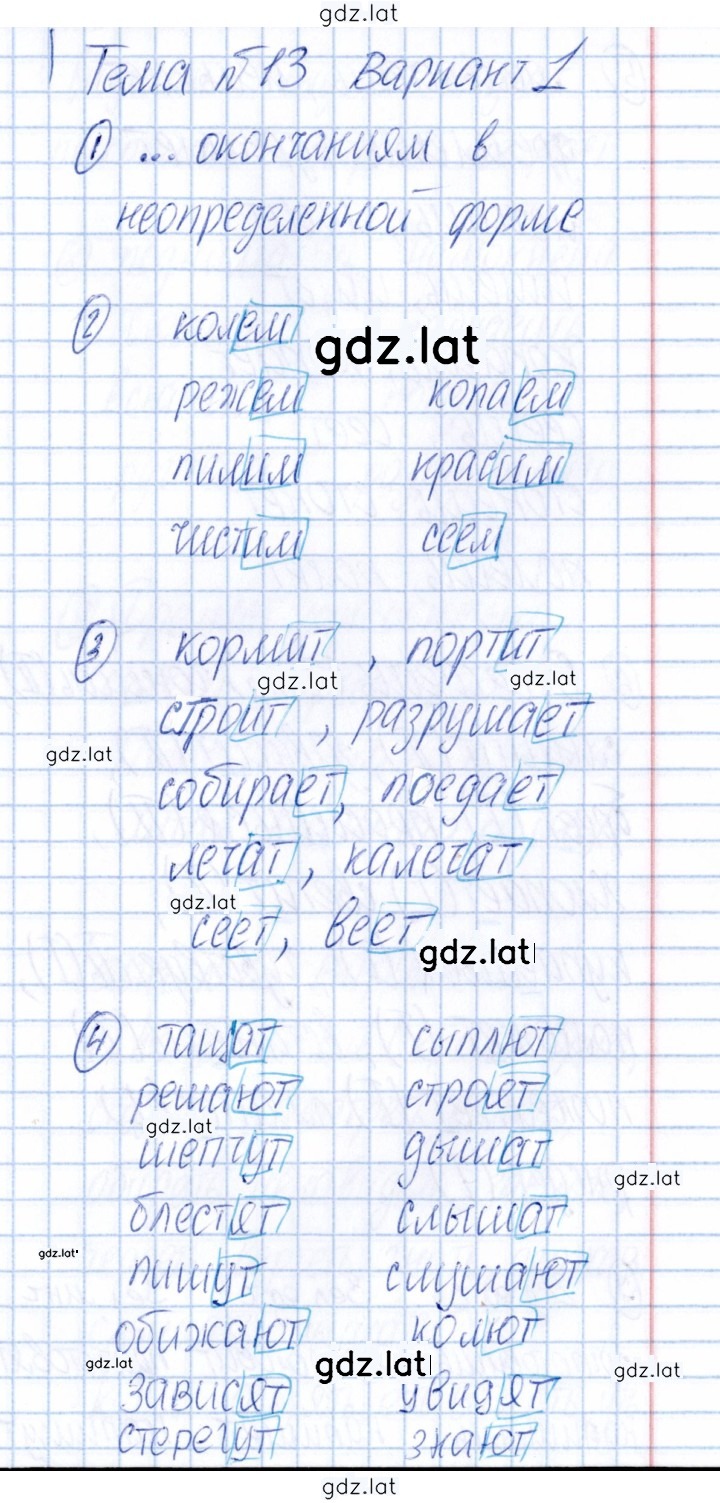 gdz.lat
Тема №13 Вариант 1
① ... окончаниям в
неопределенной форме
② колем
gdz.lat
режем копаем
пилим красим
чистим сеем
③ кормит, портит
gdz.lat gdz.lat
строит, разрушает
gdz.lat
собирает, поедает
лечат, калечат
gdz.lat
сеет, веет
gdz.lat
④ тащат сыплют
решают строят
gdz.lat
шепчут дышат
gdz.lat
блестят слышат
gdz.lat
пишут слушают
обижают колют
gdz.lat gdz.lat gdz.lat
зависят увидят
стерегут знают
gdz.lat